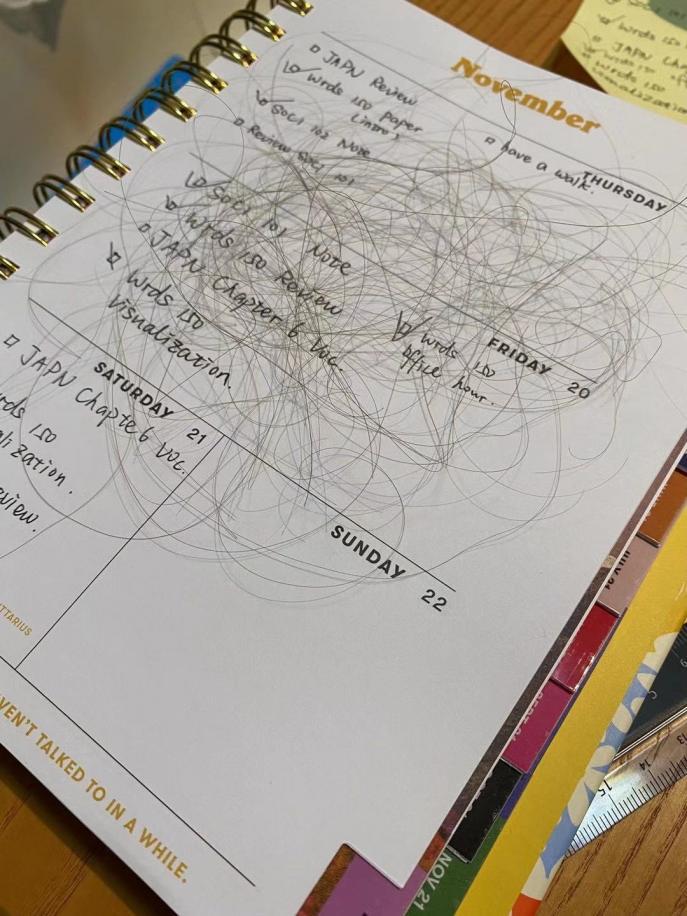 November
THURSDAY
JAPN Review
Wrds 150 paper
(intro)
Soci 102 Note
Review Soci 101
have a walk.
FRIDAY 20
Soci 101 Note
Wrds 150 Review
JAPN Chapter 6 Voc.
Wrds 150
Visualization.
Wrds 150
office hour.
SATURDAY 21
JAPN Chapte 6 Voc.
rds 150
lization.
eview.
TTARIUS
SUNDAY 22
VEN'T TALKED TO IN A WHILE.
NOV 21
14
15
13